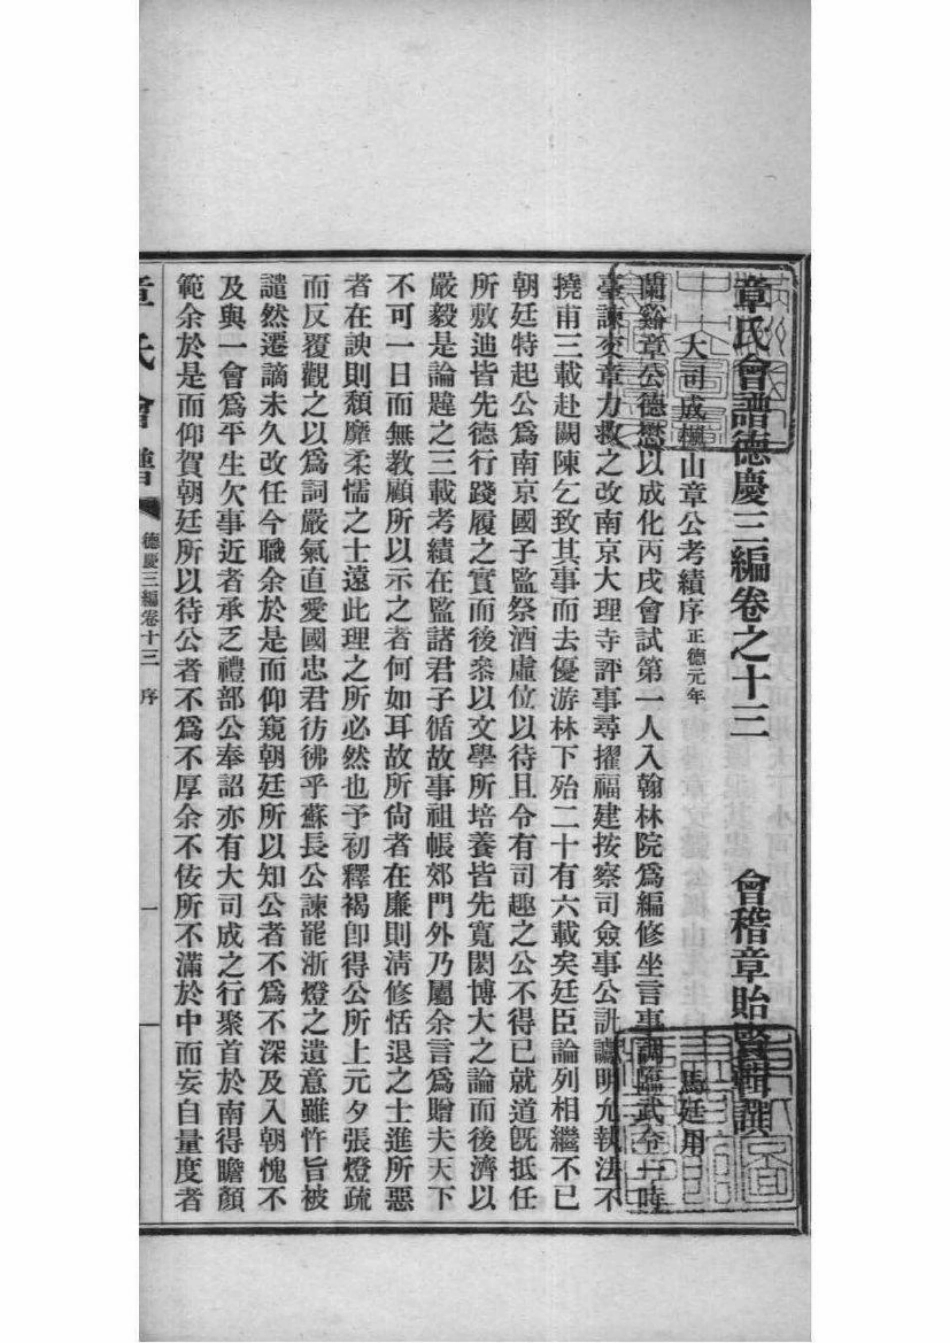 章氏會譜德慶三編卷之十三　會稽章貽賢輯譔
大司成楓山章公考績序正德元年　馬廷用
蘭谿章公德懋以成化丙戌會試第一人入翰林院爲編修坐言事調臨武令一時
臺諫交章力救之改南京大理寺評事尋擢福建按察司僉事公訊讞明允執法不
撓甫三載赴闕陳乞致其事而去優游林下殆二十有六載矣廷臣論列相繼不已
朝廷特起公爲南京國子監祭酒虛位以待且令有司趣之公不得已就道旣抵任
所敷迪皆先德行踐履之實而後叅以文學所培養皆先寬閎博大之論而後濟以
嚴毅是論韙之三載考績在監諸君子循故事祖帳郊門外乃屬余言爲贈夫天下
不可一日而無教顧所以示之者何如耳故所尙者在廉則淸修恬退之士進所惡
者在諛則頹靡柔懦之士遠此理之所必然也予初釋褐卽得公所上元夕張燈疏
而反覆觀之以爲詞嚴氣直愛國忠君彷彿乎蘇長公諫罷浙燈之遺意雖忤旨被
譴然遷謫未久改任今職余於是而仰窺朝廷所以知公者不爲不深及入朝愧不
及與一會爲平生欠事近者承乏禮部公奉詔亦有大司成之行聚首於南得瞻顏
範余於是而仰賀朝廷所以待公者不爲不厚余不佞所不滿於中而妄自量度者
章氏會譜　德慶三編卷十三　序　一